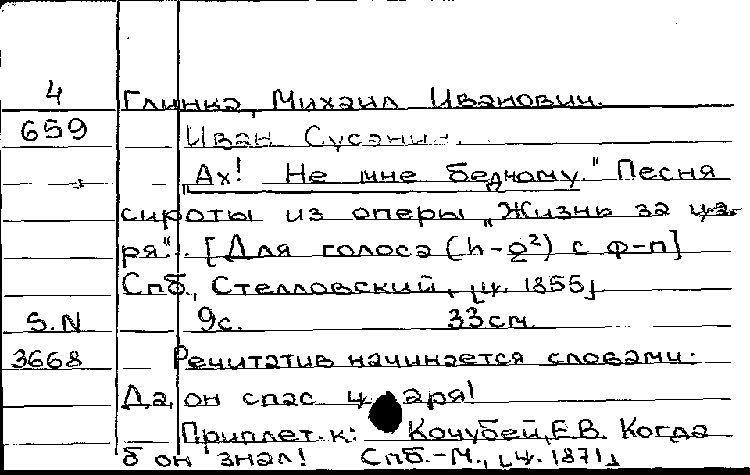 4 Глинка, Михаил Иванович.
659 Иван Сусанин.
„Ах! Не мне бедному." Песня
сироты из оперы „Жизнь за ца-
ря". [Для голоса (h-g²) с ф-п]
Спб., Стелловский, [ц. 1855]
S.N 9с. 33см.
3668 Речитатив начинается словами:
Да, он спас царя!
Приплет. к: Кочубей, Е.В. Когда
б он знал! Спб.-М., [ц. 1871]